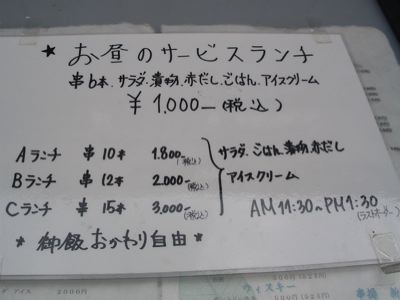 ★ お昼のサービスランチ
串6本、サラダ、漬物、赤だし、ごはん、アイスクリーム
¥1,000-(税込)
Aランチ 串 10本 1.800-(税込)
Bランチ 串 12本 2.000-(税込)
Cランチ 串 15本 3,000-(税込)
サラダ、ごはん、漬物、赤だし
アイスクリーム
AM11:30~PM1:30
(ラストオーダー)
* 御飯おかわり自由 *
アイス 2000円
ウィスキー